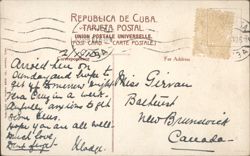 REPUBLICA DE CUBA.
TARJETA POSTAL
UNION POSTALE UNIVERSELLE.
POST CARD — CARTE POSTALE
For Address
Arrived here on
Sunday and hope to
get off tomorrow night
This City is a
Awfully anxious to get
home
Hope you are all well
Much love,
Miss Girvan
Bathurst
New Brunswick
Canada